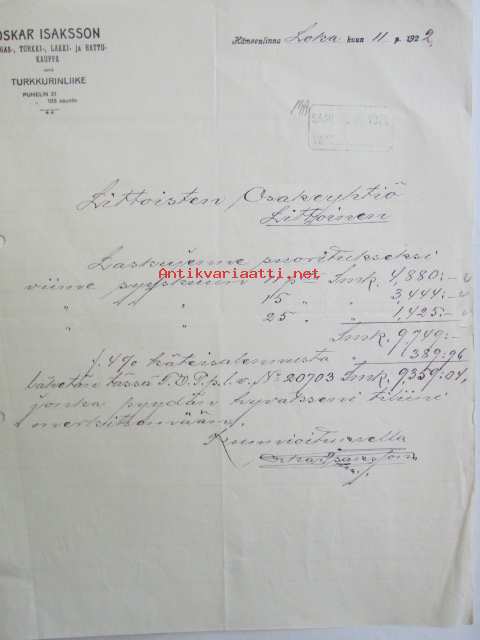 OSKAR ISAKSSON
GAS-, TURKKI-, LAKKI- ja HATTU-
KAUPPA
TURKKURINLIIKE
PUHELIN 21
" 123 asunto
Hämeenlinna Loka kuun 11 p. 1922.
Littoisten Osakeyhtiö
Littoinen
Laskujenne suoritukseksi
viime syyskuun 11 p:ltä Smk. 4,880:–
" " 15 " " 3,444:–
" " 25 " " 1,425:–
Smk. 9749:–
/. 4% käteisalennusta " 389:96
lähetän tässä P.Y.P.p.l.v. No 20703 Smk. 9,359:04,
jonka pyydän hyväkseni tiliini
merkitsemään.
Kunnioituksella
Oskar Isaksson
Antikvariaatti.net